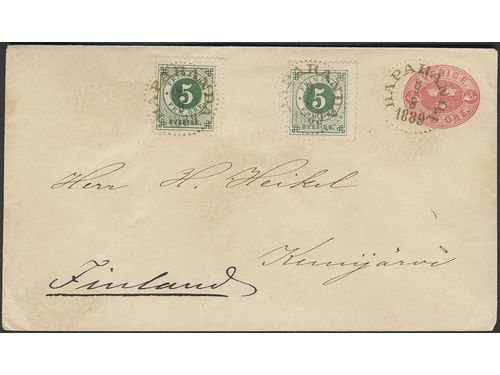 HAPARANDA
5
FEM ÖRE
SVERIGE
HAPARANDA
5
FEM ÖRE
SVERIGE
HAPARANDA
1889
SVERIGE
ÖRE
Herr H. Heikel
Kemijärvi
Finland